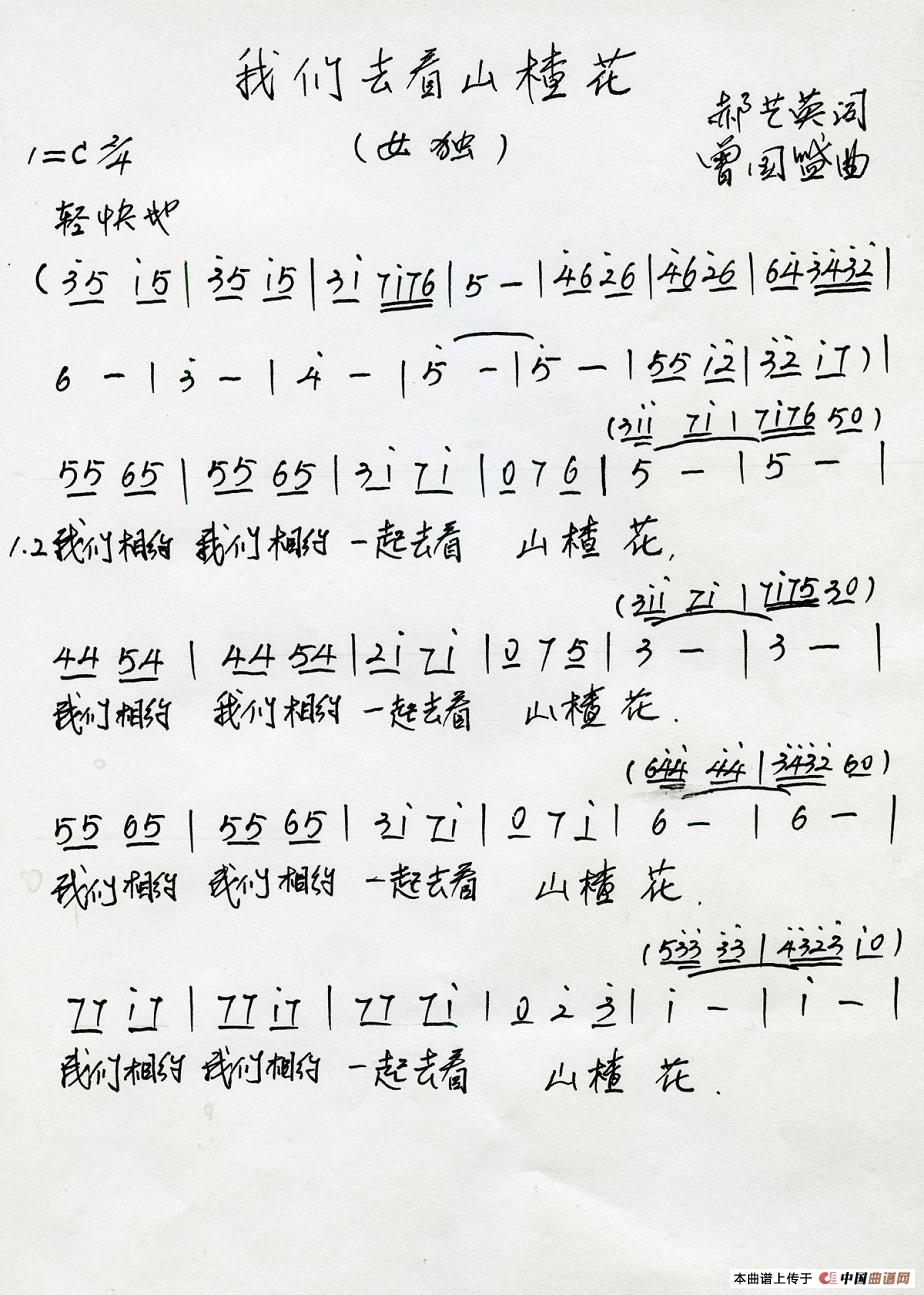 我们去看山楂花
(女独)
郝艺英词
曾国盛曲
1=C 2/4
轻快地
(3̇5 i5 | 3̇5 i5 | 3i 7i76 | 5 - | 4̇62̇6 | 4̇62̇6 | 64̇3̇4̇3̇2̇ |
6 - | 3̇ - | 4̇ - | 5̇ - | 5̇ - | 55 i2̇ | 3̇2̇ i7) |
(3ii 7i | 7i76 50)
55 65 | 55 65 | 3i 7i | 0 7 6 | 5 - | 5 - |
1.2我们相约 我们相约 一起去看 山楂花,
(3ii 7i | 7i75 30)
44 54 | 44 54 | 2i 7i | 0 7 5 | 3 - | 3 - |
我们相约 我们相约 一起去看 山楂花.
(64̇4̇ 4̇4̇ | 3̇4̇3̇2̇ 60)
55 65 | 55 65 | 3i 7i | 0 7 i | 6 - | 6 - |
我们相约 我们相约 一起去看 山楂花.
(53̇3̇ 3̇3̇ | 4̇3̇2̇3̇ i0)
77 i7 | 77 i7 | 77 7i | 0 2̇ 3̇ | i - | i - |
我们相约 我们相约 一起去看 山楂花.
本曲谱上传于 中国曲谱网